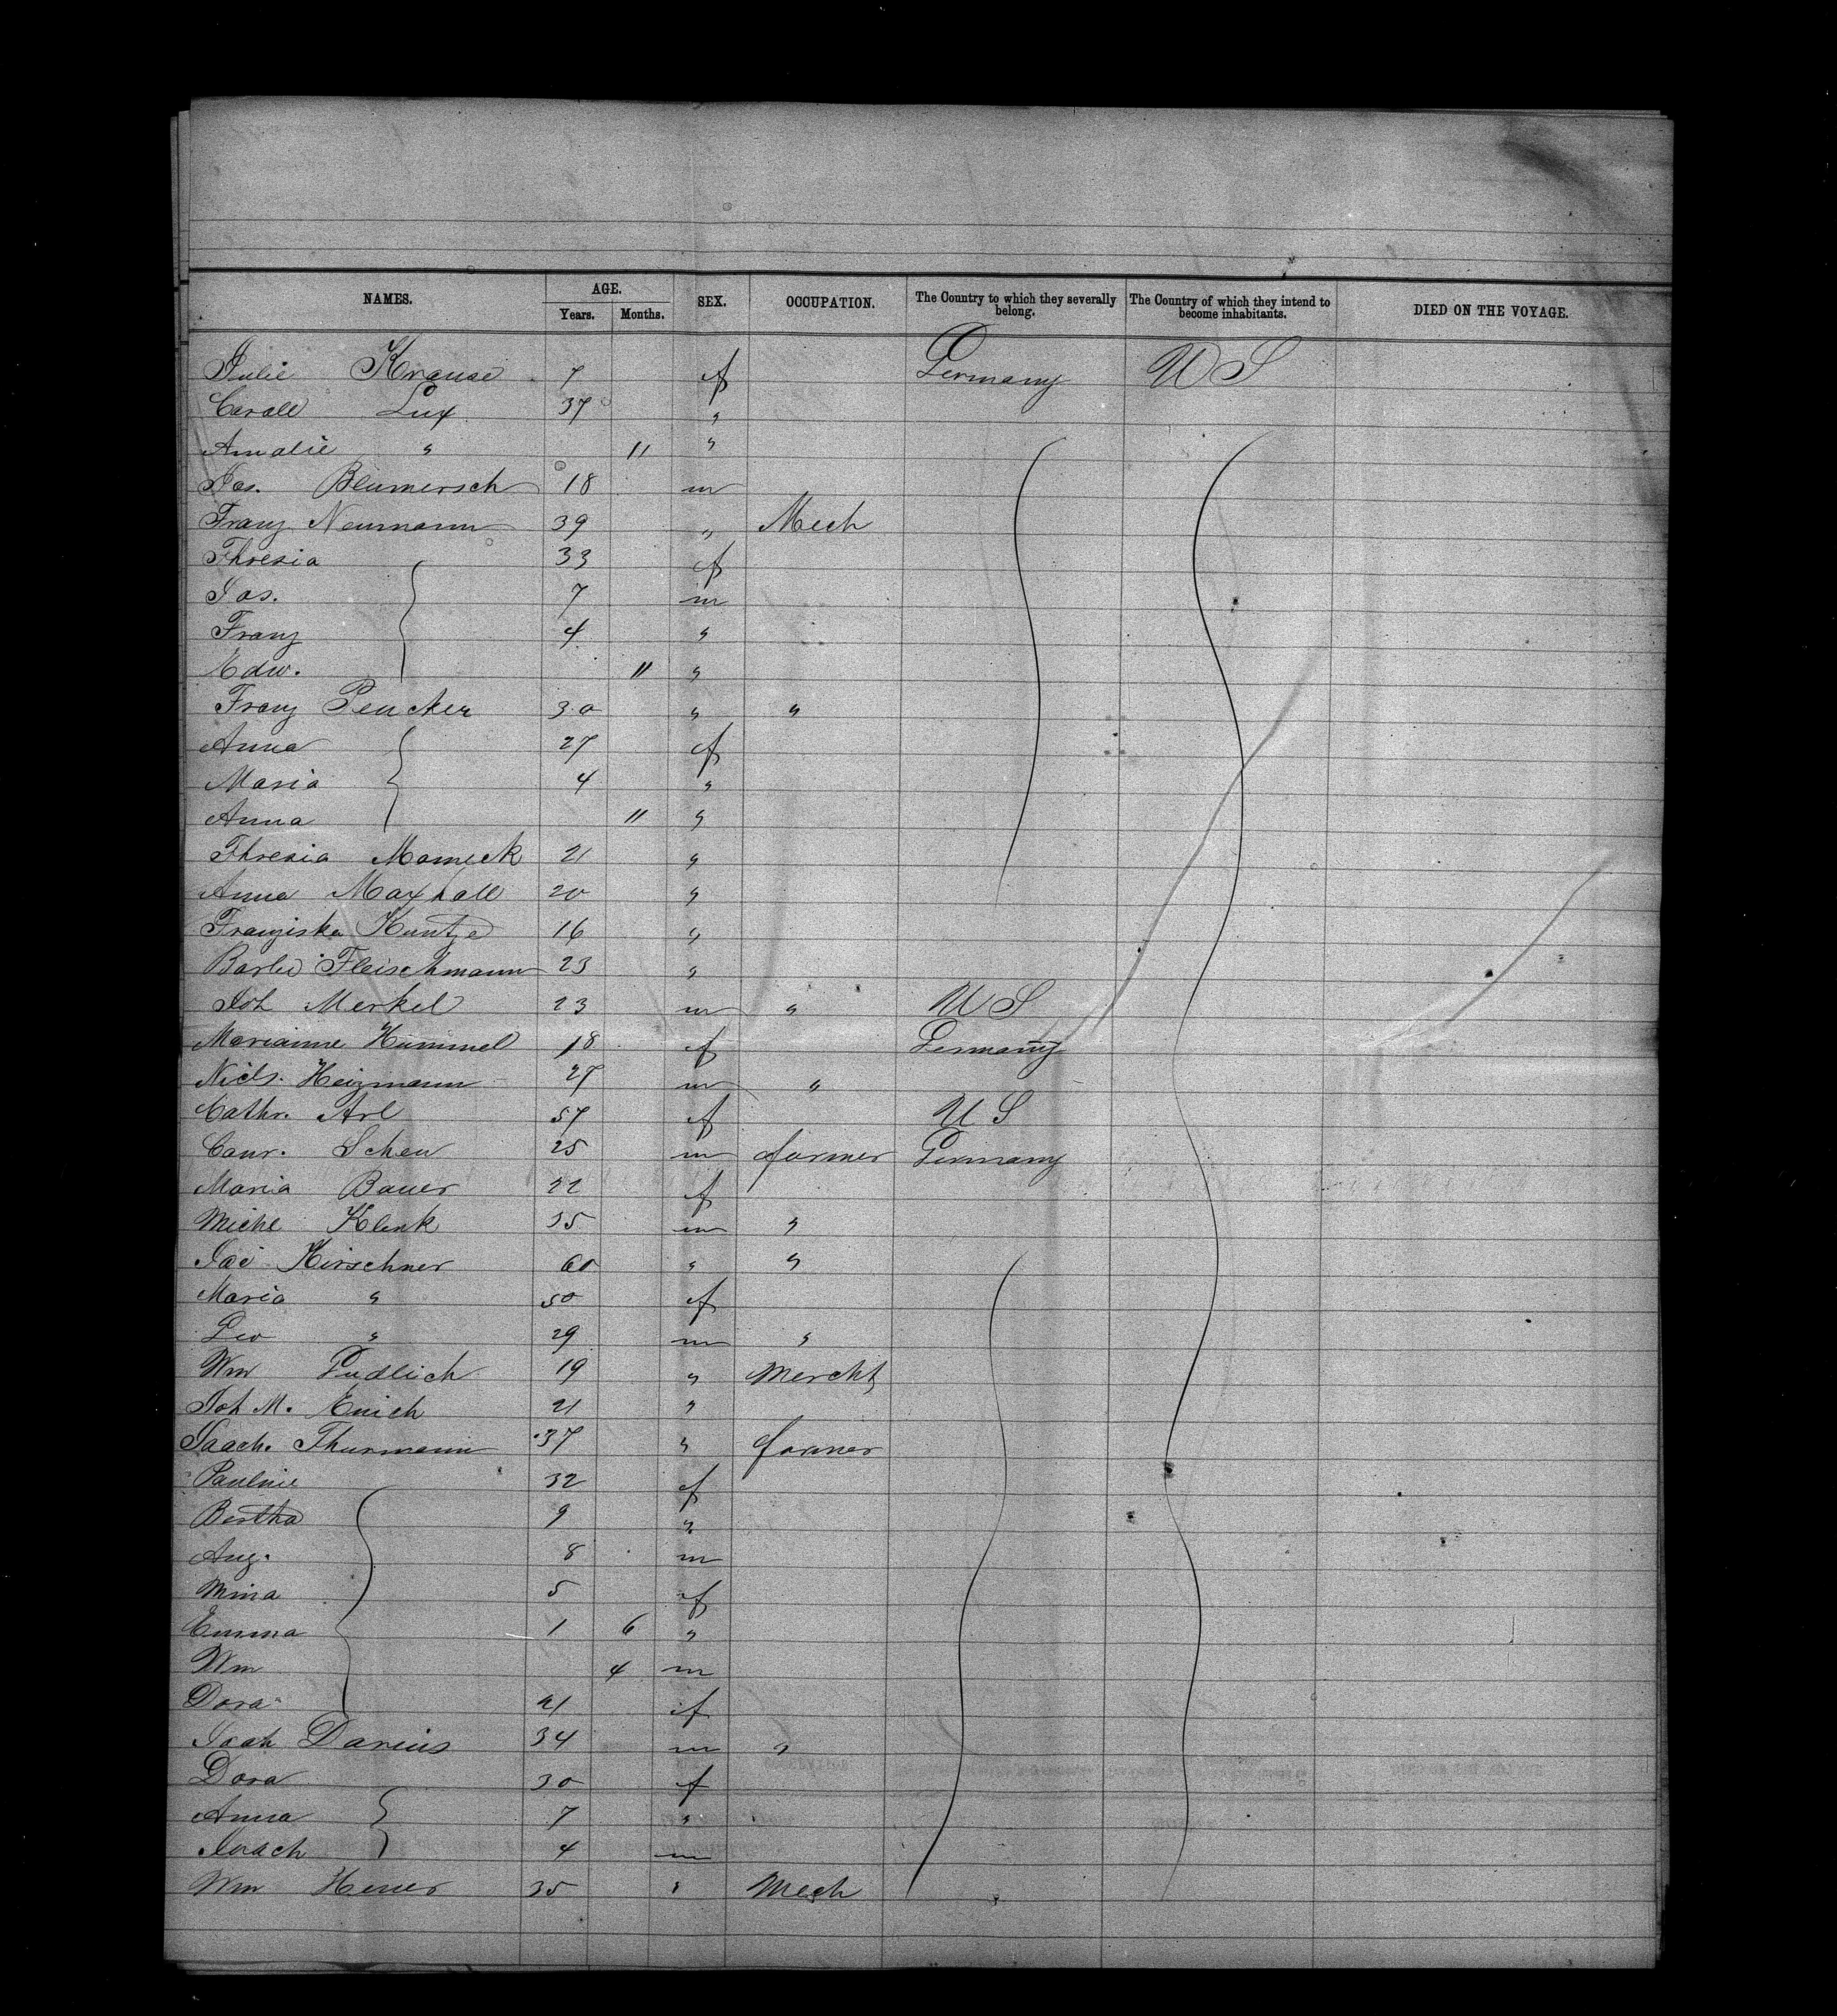 NAMES. AGE. SEX. OCCUPATION. The Country to which they severally belong. The Country of which they intend to become inhabitants. DIED ON THE VOYAGE.
Years. Months.
Julie Krause 7 f Germany U S
Caroll Lux 37 "
Amalie " 11 "
Jos. Blumersch 18 m
Franz Neumann 39 " Mech
Thresia 33 f
Jos. 7 m
Franz 4 "
Edw. 11 "
Franz Peucker 30 " "
Anna 27 f
Maria 4 "
Anna 11 "
Thresia Mameck 21 "
Anna Maxhall 20 "
Franziska Kuntze 16 "
Barbe Fleischmann 23 "
Joh Merkel 23 m " U S
Marianne Hummel 18 f Germany
Nicls. Heizmann 27 m "
Cathr. Arl 57 f U S
Conr. Scheu 25 m farmer Germany
Maria Bauer 22 f
Michl Klenk 35 m "
Jac Kirschner 60 " "
Maria " 50 f
Leo " 29 m "
Wm Pudlich 19 " Mercht
Joh M. Emich 21 "
Joach. Thurmann 37 " farmer
Pauline 32 f
Bertha 9 "
Aug. 8 m
Mina 5 f
Emma 1 6 "
Wm 4 m
Dora 21 f
Joah Darius 34 m "
Dora 30 f
Anna 7 "
Joach 4 m
Wm Heuer 35 " Mech